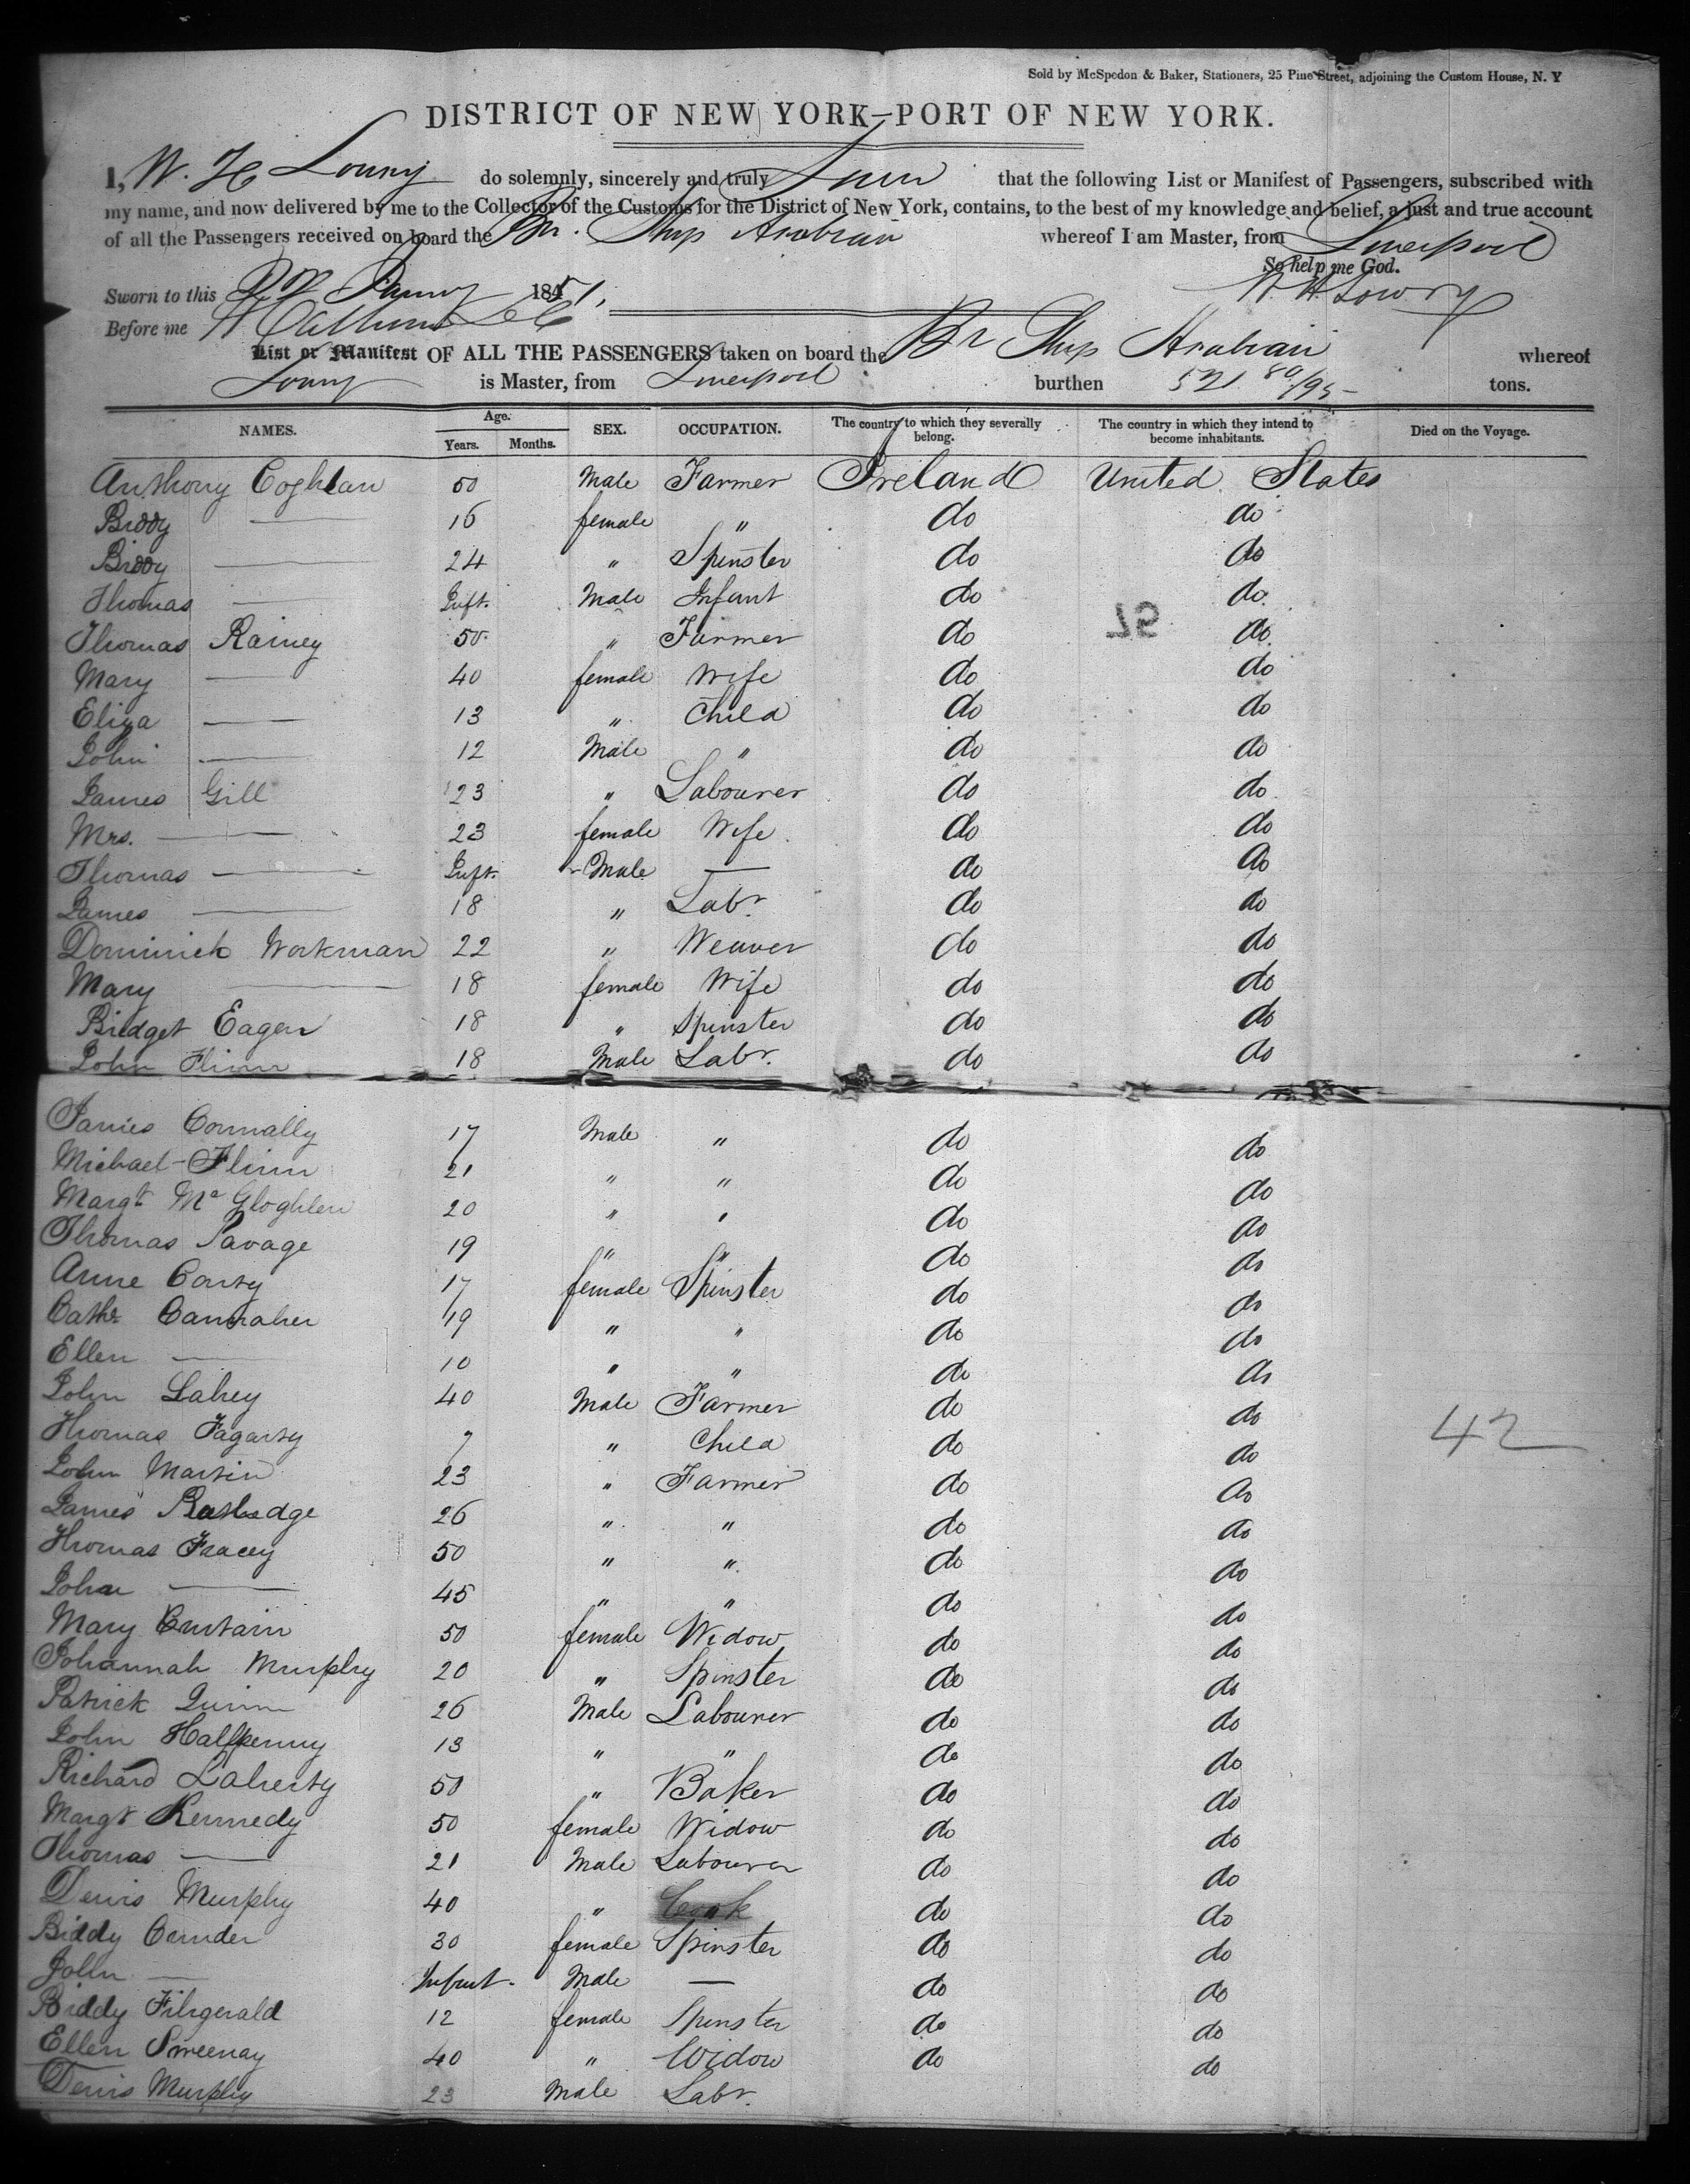 Sold by McSpedon & Baker, Stationers, 25 Pine Street, adjoining the Custom House, N. Y
DISTRICT OF NEW YORK—PORT OF NEW YORK.
I, W. H Lowry do solemnly, sincerely and truly Swear that the following List or Manifest of Passengers, subscribed with
my name, and now delivered by me to the Collector of the Customs for the District of New York, contains, to the best of my knowledge and belief, a just and true account
of all the Passengers received on board the Br. Ship Arabian whereof I am Master, from Liverpool
So help me God.
Sworn to this 1851. W. H. Lowry
Before me
List or Manifest OF ALL THE PASSENGERS taken on board the Br Ship Arabian whereof
Lowry is Master, from Liverpool burthen 521 80/95 tons.
NAMES. Age. Years. Months. SEX. OCCUPATION. The country to which they severally belong. The country in which they intend to become inhabitants. Died on the Voyage.
Anthony Coghlan 50 Male Farmer Ireland United States
Biddy — 16 female " do do
Biddy — 24 " Spinster do do
Thomas — Inft. Male Infant do do
Thomas Rainey 50 " Farmer do do
Mary — 40 female Wife do do
Eliza — 13 " Child do do
John — 12 Male " do do
James Gill 23 " Labourer do do
Mrs. — 23 female Wife do do
Thomas — Inft. Male — do do
James — 18 " Labr. do do
Dominick Workman 22 " Weaver do do
Mary — 18 female Wife do do
Bridget Eagen 18 " Spinster do do
John Flinn 18 Male Labr. do do
James Connally 17 Male " do do
Michael Flinn 21 " " do do
Margt Mc Gloghlen 20 " " do do
Thomas Savage 19 " " do do
Anne Corty 17 female Spinster do do
Cathe 19 " " do do
Ellen — 10 " " do do
John Lahey 40 Male Farmer do do
Thomas Fagarty 7 " Child do do
42
John Martin 23 " Farmer do do
James 26 " " do do
Thomas Tracey 50 " " do do
John — 45 " " do do
Mary 50 female Widow do do
Johannah Murphy 20 " Spinster do do
Patrick Quinn 26 Male Labourer do do
John Halfpenny 13 " " do do
Richard Laherty 50 " Baker do do
Margt Kennedy 50 female Widow do do
Thomas — 21 Male Labourer do do
Denis Murphy 40 " Cook do do
Biddy 30 female Spinster do do
John — Infant. Male — do do
Biddy Fitzgerald 12 female Spinster do do
Ellen Sweenay 40 " Widow do do
Denis Murphy 23 Male Labr.